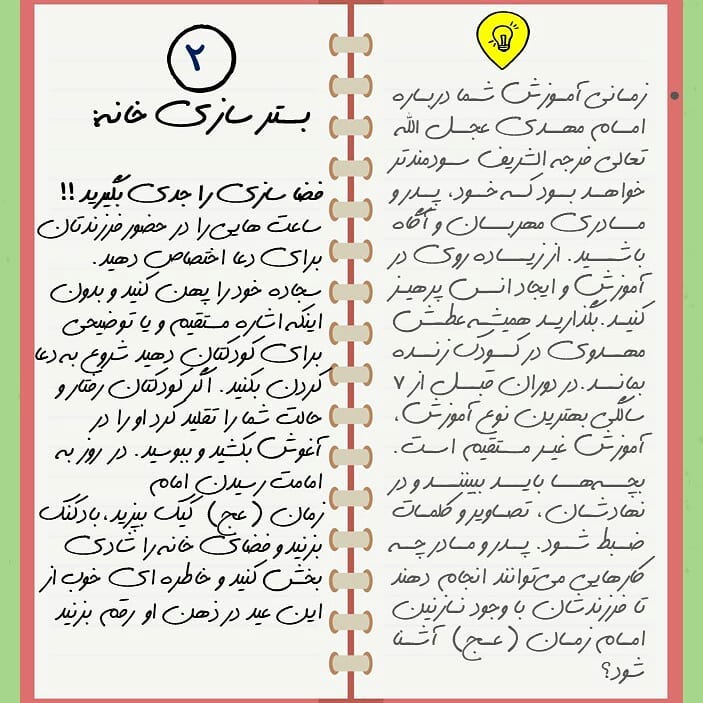 زمانی آموزش شما درباره
امام مهدی عجل الله
تعالی فرجه الشریف سودمندتر
خواهد بود که خود، پدر و
مادری مهربان و آگاه
باشید. از زیاده روی در
آموزش و ایجاد انس پرهیز
کنید. بگذارید همیشه عطش
مهدوی در کودک زنده
بماند. در دوران قبل از ۷
سالگی بهترین نوع آموزش،
آموزش غیر مستقیم است.
بچه‌ها باید ببینند و در
نهادشان، تصاویر و کلمات
ضبط شود. پدر و مادر چه
کارهایی می‌توانند انجام دهند
تا فرزندشان با وجود نازنین
امام زمان (عج) آشنا
شود؟
۲
بستر سازی خانه:
فضا سازی را جدی بگیرید !!
ساعت هایی را در حضور فرزندتان
برای دعا اختصاص دهید.
سجاده خود را پهن کنید و بدون
اینکه اشاره مستقیم و یا توضیحی
برای کودکتان دهید شروع به دعا
کردن بکنید. اگر کودکتان رفتار و
حالت شما را تقلید کرد او را در
آغوش بکشید و ببوسید. در روز به
امامت رسیدن امام
زمان (عج) کیک بپزید، بادکنک
بزنید و فضای خانه را شادی
بخش کنید و خاطره ای خوب از
این عید در ذهن او رقم بزنید